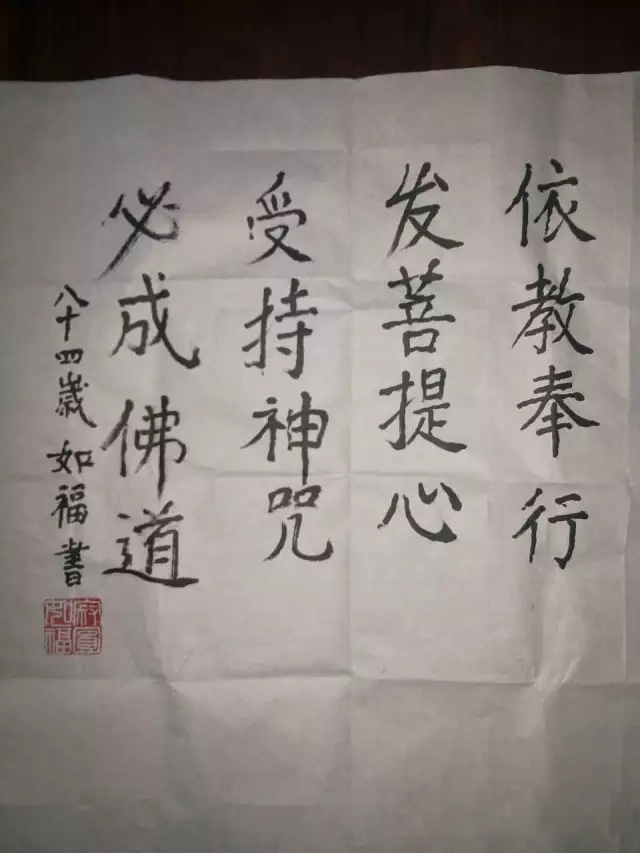 依教奉行
发菩提心
受持神咒
必成佛道
八十四岁如福書